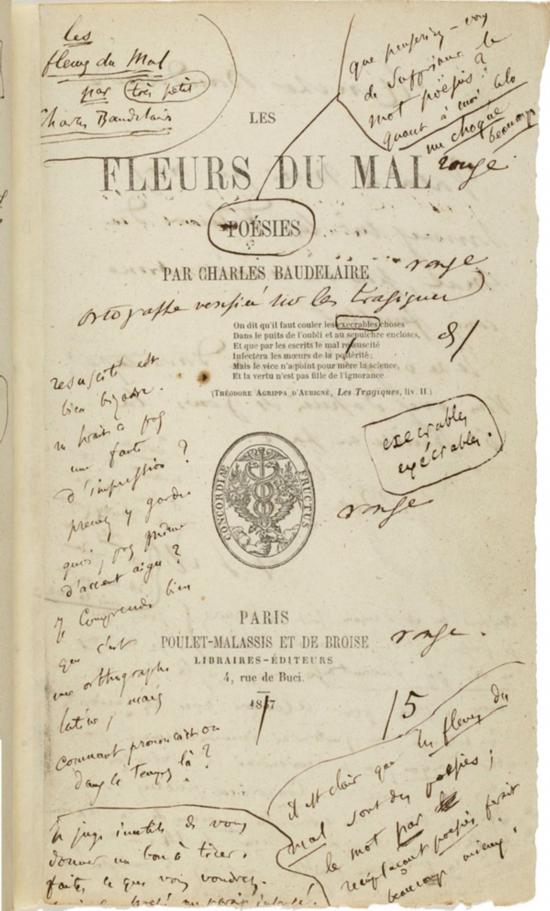 les
fleurs du Mal
par très petit
Charles Baudelaire
que penseriez-vous
de supprimer le
mot poésies ?
quant à moi cela
me choque
beaucoup
LES
FLEURS DU MAL
rouge
POÉSIES
PAR CHARLES BAUDELAIRE
rouge
sur les Tragiques
On dit qu'il faut couler les execrables choses
Dans le puits de l'oubli et au sepulchre encloses,
Et que par les escrits le mal resuscité
Infectera les mœurs de la postérité;
Mais le vice n'a point pour mère la science,
Et la vertu n'est pas fille de l'ignorance
(THÉODORE AGRIPPA D'AUBIGNÉ, Les Tragiques, liv. II.)
resuscité est
bien bizarre.
une faute
d'impression ?
prenez y garde
d'accent aigu ?
Je comprends bien
que c'est
une orthographe
latine, mais
comment prononçait-on
dans ce temps là ?
execrables
exécrables.
CONCORDIÆ FRUCTUS
rouge
PARIS
POULET-MALASSIS ET DE BROISE
rouge.
LIBRAIRES-ÉDITEURS
4, rue de Buci.
1857
5
Je juge inutile de vous
donner un bon à tirer.
faites ce que vous voudrez.
il est clair que les fleurs du
mal sont des poésies ;
le mot par
remplaçant poésies ferait
beaucoup mieux.